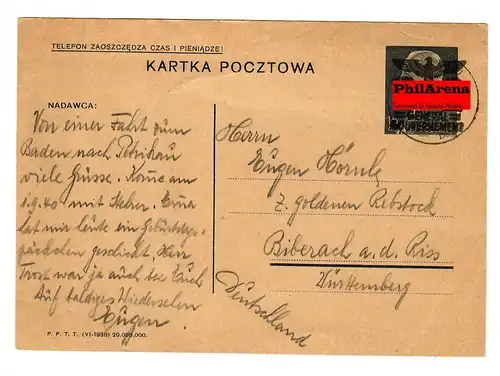 TELEFON ZAOSZCZĘDZA CZAS I PIENIĄDZE!
KARTKA POCZTOWA
PhilArena
GENERAL
GOUVERNEMENT
NADAWCA:
Von einer Fahrt zum
Baden nach Petrikau
viele Grüsse. Komme am
1.9.40 mit
hat mir heute ein Geburtstags-
päckchen geschickt. Herr
Trost war ja auch bei Euch
Auf baldiges Wiedersehen
Eugen.
Herrn
Eugen Hörnle
z. goldenen Rebstock
Biberach a. d. Riss
Württemberg
Deutschland
P. P. T. T. (VI-1938) 20.000.000.